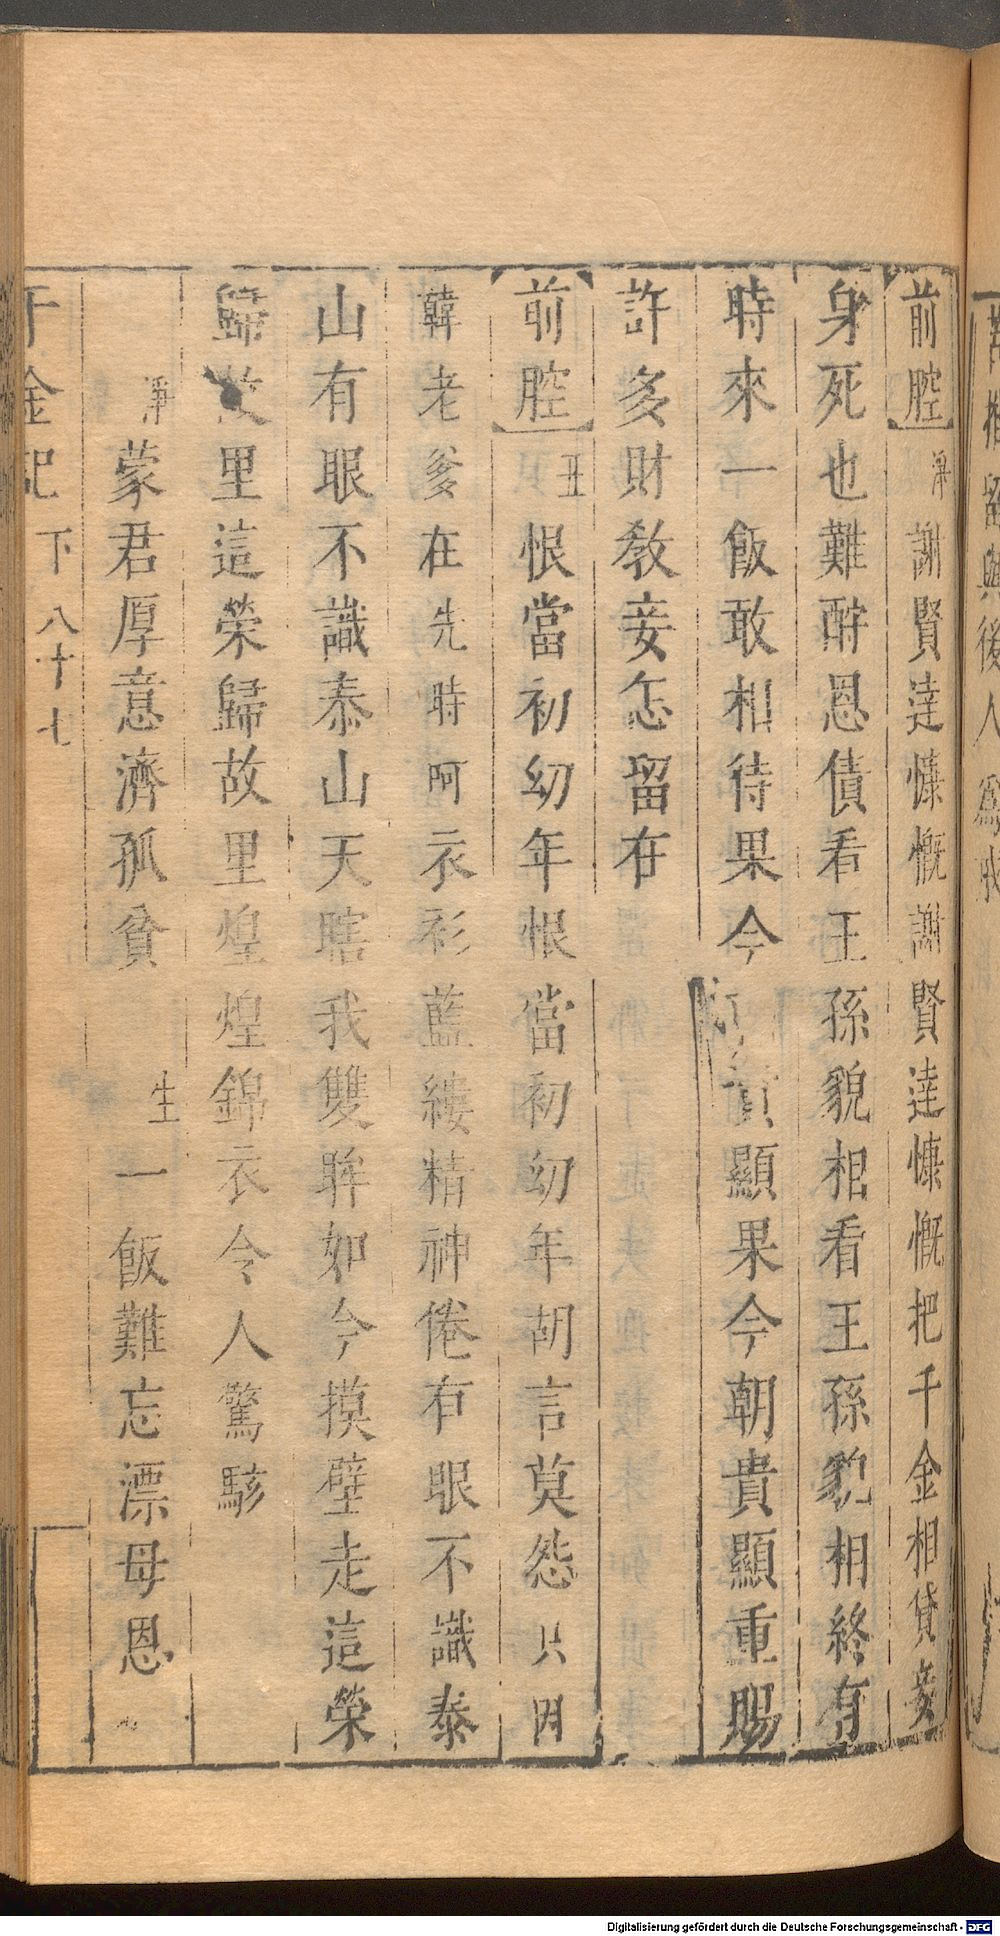 前腔淨謝賢達慷慨謝賢達慷慨把千金相貸妾
身死也難酧恩債看王孫貌相看王孫貌相終有
時來一飯敢相待果今貴顯果今朝貴顯重賜
許多財教妾怎留在
前腔丑恨當初幼年恨當初幼年胡言莫怨只因
韓老爹在先時阿衣衫藍縷精神倦有眼不識泰
山有眼不識泰山天瞎我雙眸如今摸壁走這榮
歸故里這榮歸故里煌煌錦衣令人驚駭
淨蒙君厚意濟孤貧 生一飯難忘漂母恩
千金記 下 八十七
留與後人
Digitalisierung gefördert durch die Deutsche Forschungsgemeinschaft - DFG